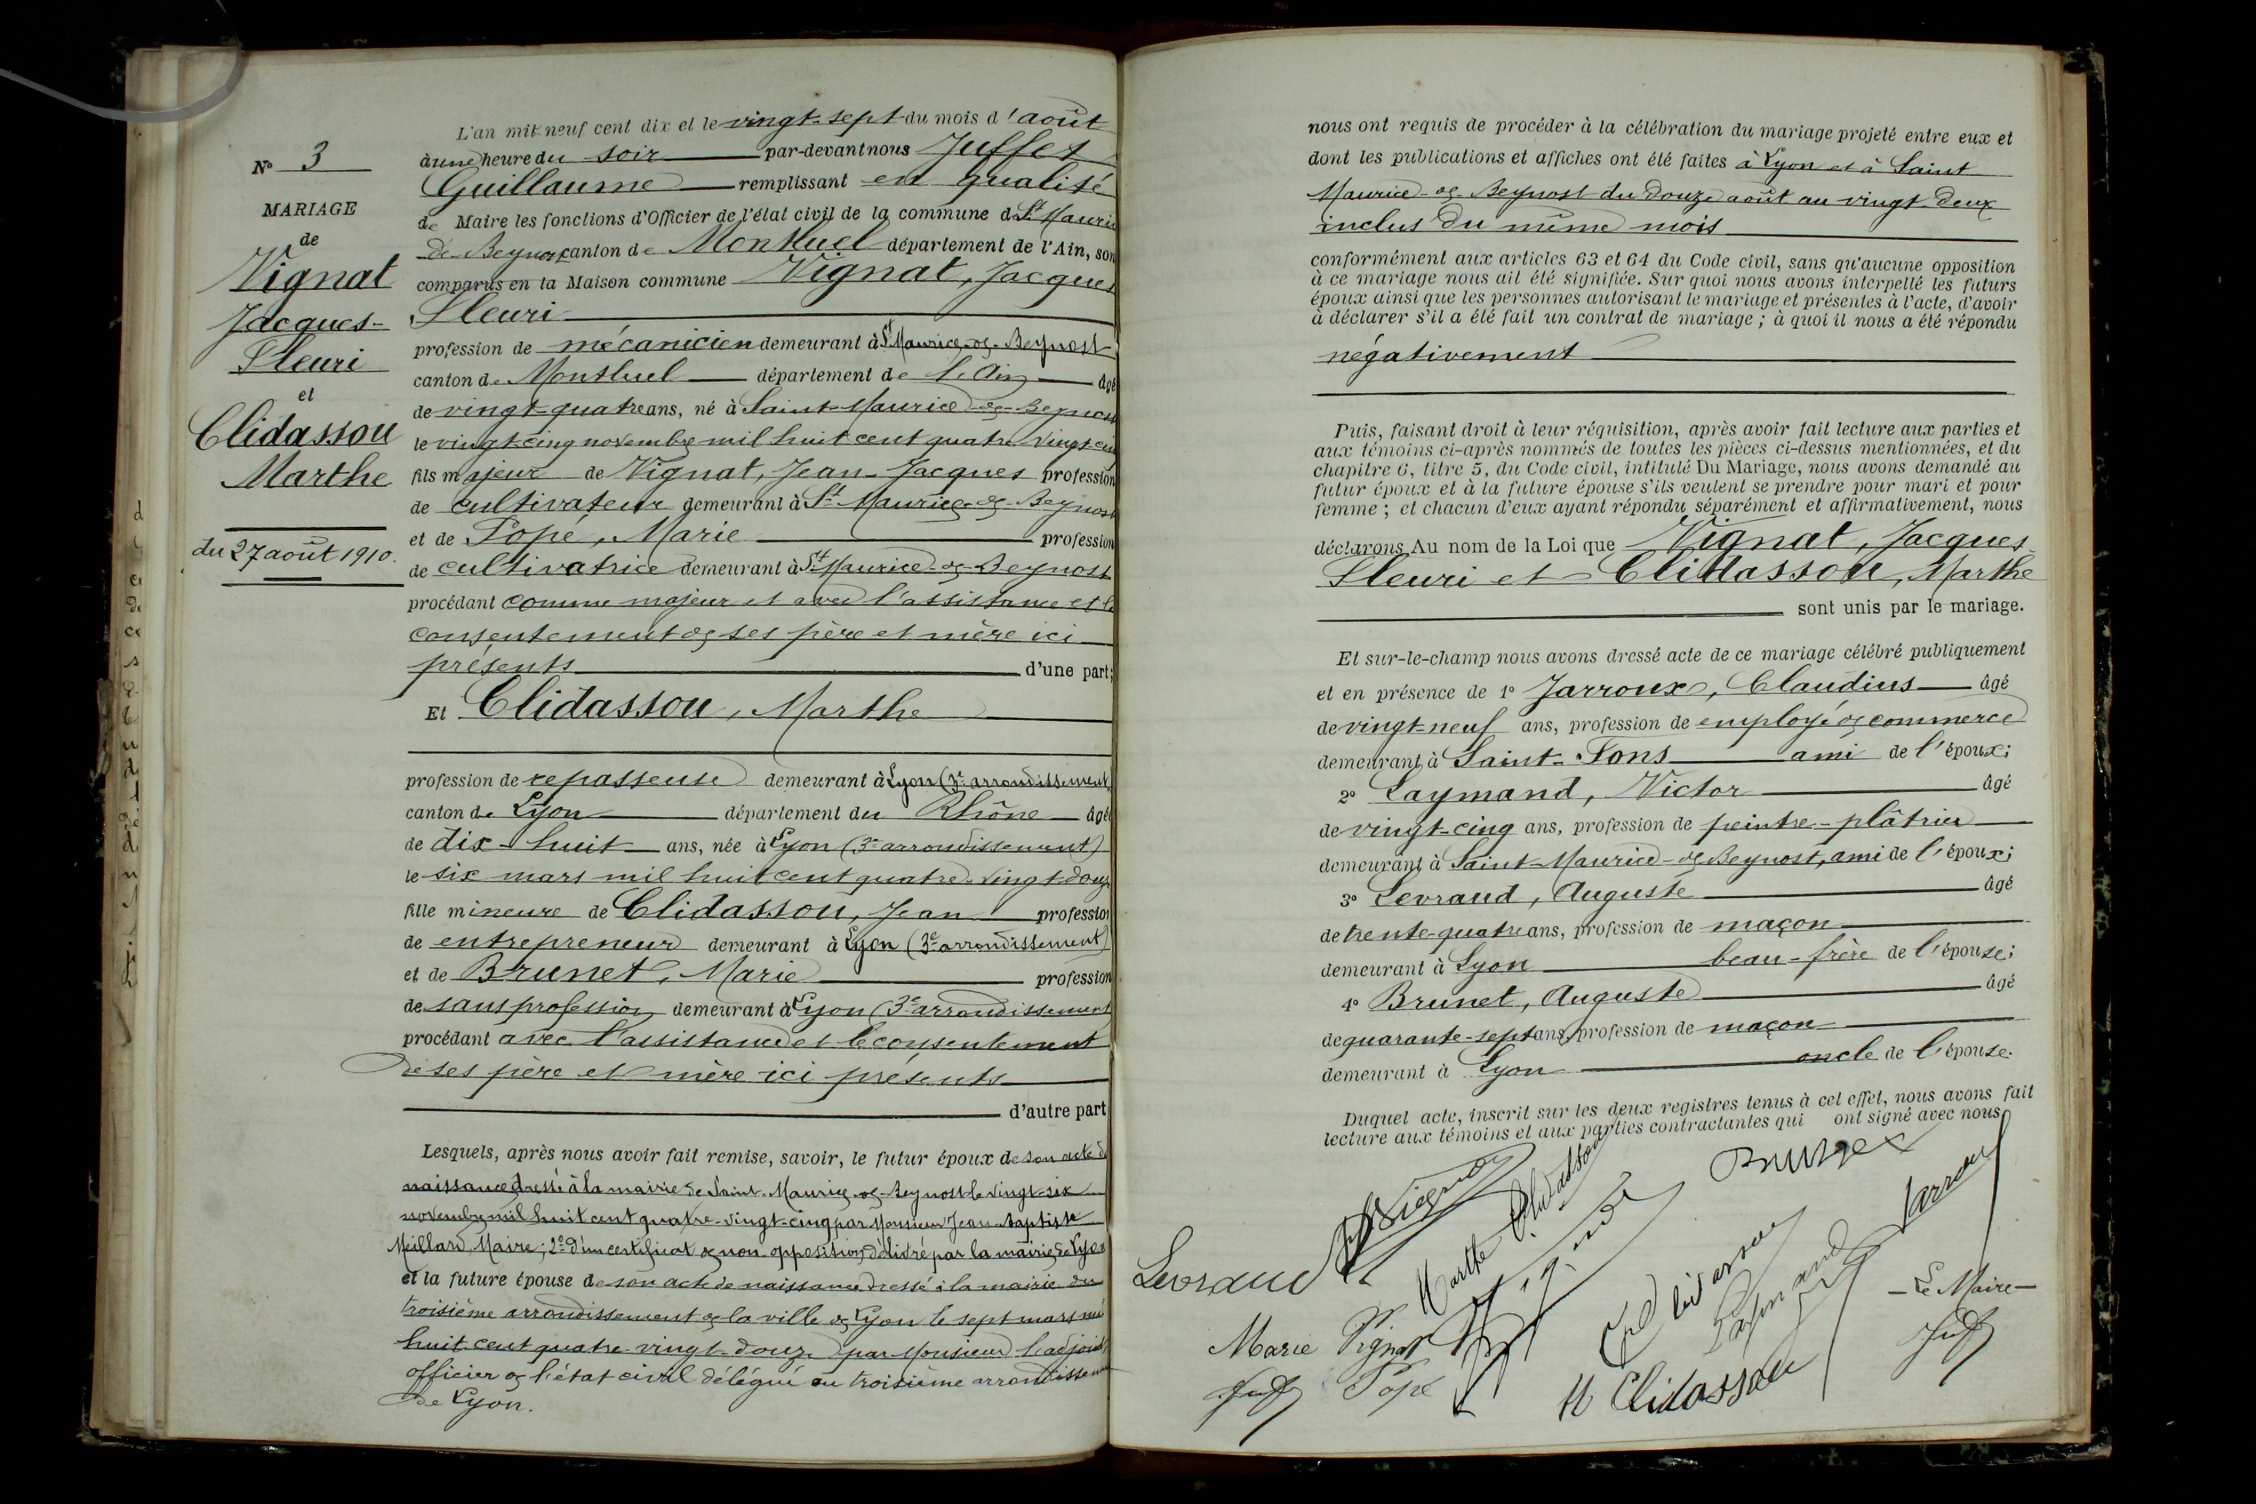 N° 3
MARIAGE
de
Vignat
Jacques-
Fleuri
et
Clidassou
Marthe
du 27 août 1910.
L'an mil neuf cent dix et le vingt-sept du mois d'août
à une heure du soir par-devant nous Juffet
Guillaume remplissant en qualité
de Maire les fonctions d'Officier de l'état civil de la commune de St Maurice
de Beynost canton de Montluel département de l'Ain, sont
comparus en la Maison commune Vignat, Jacques
Fleuri
profession de mécanicien demeurant à St Maurice-de-Beynost
canton de Montluel département de l'Ain âgé
de vingt-quatre ans, né à Saint-Maurice-de-Beynost
le vingt-cinq novembre mil huit cent quatre-vingt-cinq
fils majeur de Vignat, Jean-Jacques profession
de cultivateur demeurant à St Maurice-de-Beynost
et de Popé, Marie profession
de cultivatrice demeurant à St Maurice-de-Beynost
procédant comme majeur et avec l'assistance et le
consentement de ses père et mère ici
présents d'une part;
Et Clidassou, Marthe
profession de repasseuse demeurant à Lyon (3e arrondissement)
canton de Lyon département du Rhône âgée
de dix-huit ans, née à Lyon (3e arrondissement)
le six mars mil huit cent quatre-vingt-douze
fille mineure de Clidassou, Jean profession
de entrepreneur demeurant à Lyon (3e arrondissement)
et de Brunet, Marie profession
de sans profession demeurant à Lyon (3e arrondissement
procédant avec l'assistance et le consentement
de ses père et mère ici présents
d'autre part
Lesquels, après nous avoir fait remise, savoir, le futur époux de son acte de
naissance dressé à la mairie de Saint-Maurice-de-Beynost le vingt-six
novembre mil huit cent quatre-vingt-cinq par Monsieur Jean-Baptiste
Meillard, Maire; 2° d'un certificat de non-opposition délivré par la mairie de Lyon
et la future épouse de son acte de naissance dressé à la mairie du
troisième arrondissement de la ville de Lyon le sept mars mil
huit cent quatre-vingt-douze par Monsieur l'adjoint
officier de l'état civil délégué au troisième arrondissement
de Lyon.
nous ont requis de procéder à la célébration du mariage projeté entre eux et
dont les publications et affiches ont été faites à Lyon et à Saint
Maurice-de-Beynost du douze août au vingt-deux
inclus du même mois
conformément aux articles 63 et 64 du Code civil, sans qu'aucune opposition
à ce mariage nous ait été signifiée. Sur quoi nous avons interpellé les futurs
époux ainsi que les personnes autorisant le mariage et présentes à l'acte, d'avoir
à déclarer s'il a été fait un contrat de mariage; à quoi il nous a été répondu
négativement
Puis, faisant droit à leur réquisition, après avoir fait lecture aux parties et
aux témoins ci-après nommés de toutes les pièces ci-dessus mentionnées, et du
chapitre 6, titre 5, du Code civil, intitulé Du Mariage, nous avons demandé au
futur époux et à la future épouse s'ils veulent se prendre pour mari et pour
femme; et chacun d'eux ayant répondu séparément et affirmativement, nous
déclarons Au nom de la Loi que Vignat, Jacques
Fleuri et Clidassou, Marthe
sont unis par le mariage.
Et sur-le-champ nous avons dressé acte de ce mariage célébré publiquement
et en présence de 1° Jarroux, Claudius âgé
de vingt-neuf ans, profession de employé de commerce
demeurant à Saint-Fons ami de l'époux;
2° Laymand, Victor âgé
de vingt-cinq ans, profession de peintre-plâtrier
demeurant à Saint-Maurice-de-Beynost, ami de l'époux;
3° Levraud, Auguste âgé
de trente-quatre ans, profession de maçon
demeurant à Lyon beau-frère de l'épouse;
4° Brunet, Auguste âgé
de quarante-sept ans, profession de maçon
demeurant à Lyon oncle de l'épouse.
Duquel acte, inscrit sur les deux registres tenus à cet effet, nous avons fait
lecture aux témoins et aux parties contractantes qui ont signé avec nous
Brunet
Marthe Clidassou
Jarroux
Levraud
Laymand
Le Maire
Marie Vignat
Popé
M Clidassou